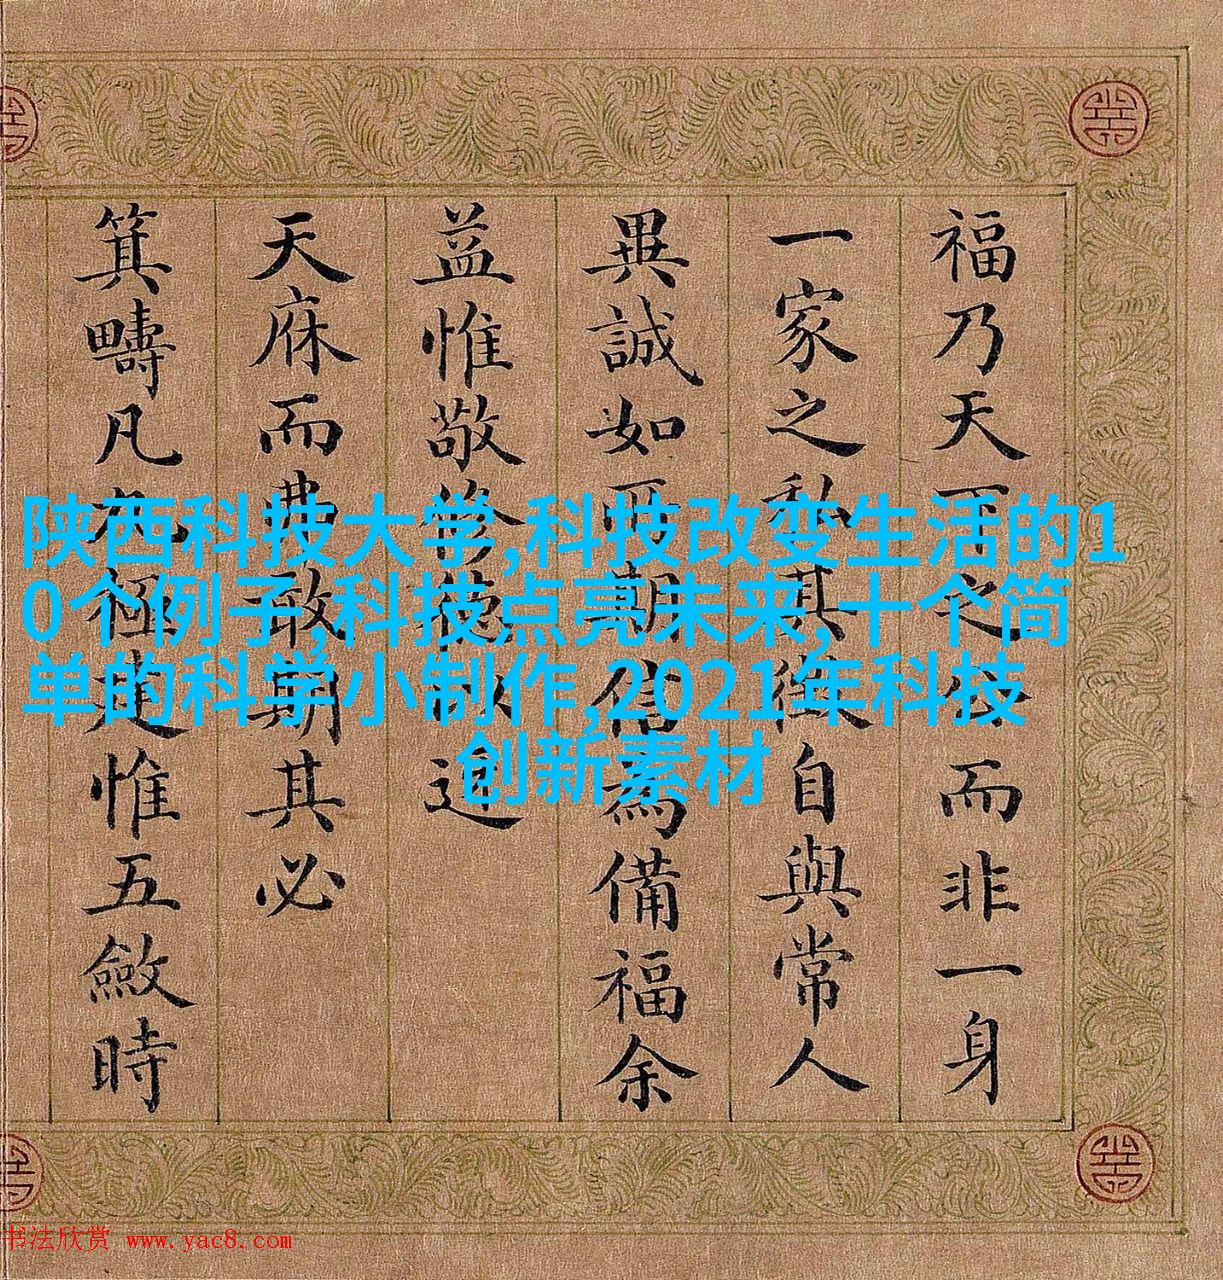 福乃天下之而非一身
一家之私其自與常人
異誠如信為備福余
益惟敬修德以迓
天庥而敢期其必
箕疇凡九極建惟五斂時
陕西科技大学,科技改变生活的1
0个例子,科技点亮未来,十个简
单的科学小制作,2021年科技
创新素材
书法欣赏 www.yac8.com